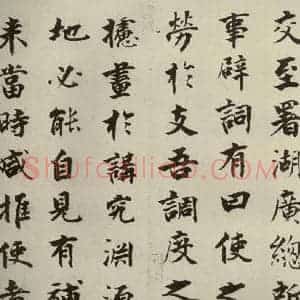 交至署湖廣總
事辟詞有曰使之
勞於支吾調度之
攄畫於講究淵源
地必能自見有補
来當時咸推使者
Shufa